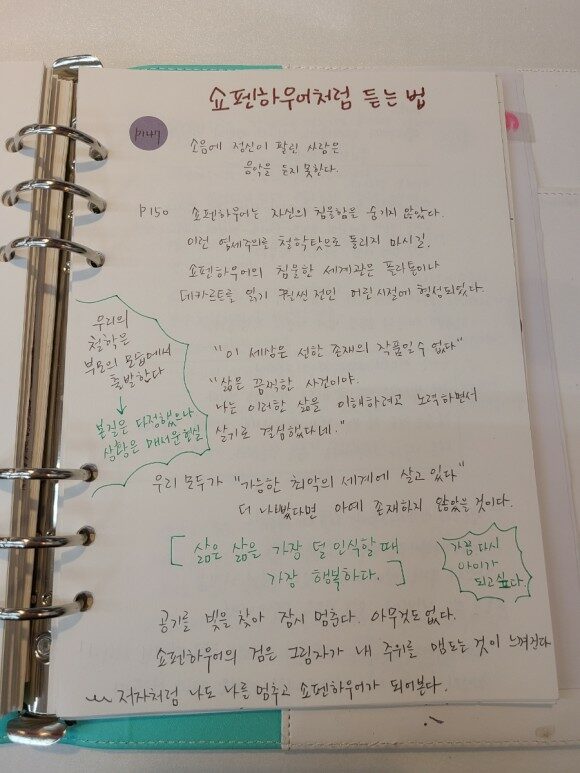 쇼펜하우어처럼 듣는 법
p147
소음에 정신이 팔린 사람은
음악을 듣지 못한다.
p150 쇼펜하우어는 자신의 침울함을 숨기지 않았다.
이런 염세주의를 철학탓으로 돌리지 마시길.
쇼펜하우어의 침울한 세계관은 플라톤이나
데카르트를 읽기 훨씬 전인 어린시절에 형성되었다.
우리의
철학은
부모의 모습에서
출발한다
↓
본질은 다정했으나
상황은 매서운 현실
"이 세상은 선한 존재의 작품일 수 없다"
"삶은 끔찍한 사건이야.
나는 이러한 삶을 이해하려고 노력하면서
살기로 결심했다네."
우리 모두가 "가능한 최악의 세계에 살고 있다"
더 나빴다면 아예 존재하지 않았을 것이다.
[ 삶은 삶을 가장 덜 인식할 때
가장 행복하다. ]
가끔 다시
아이가
되고싶다.
공기를 빛을 찾아 잠시 멈춘다. 아무것도 없다.
쇼펜하우어의 검은 그림자가 내 주위를 맴도는 것이 느껴진다
저자처럼 나도 나를 멈추고 쇼펜하우어가 되어본다.